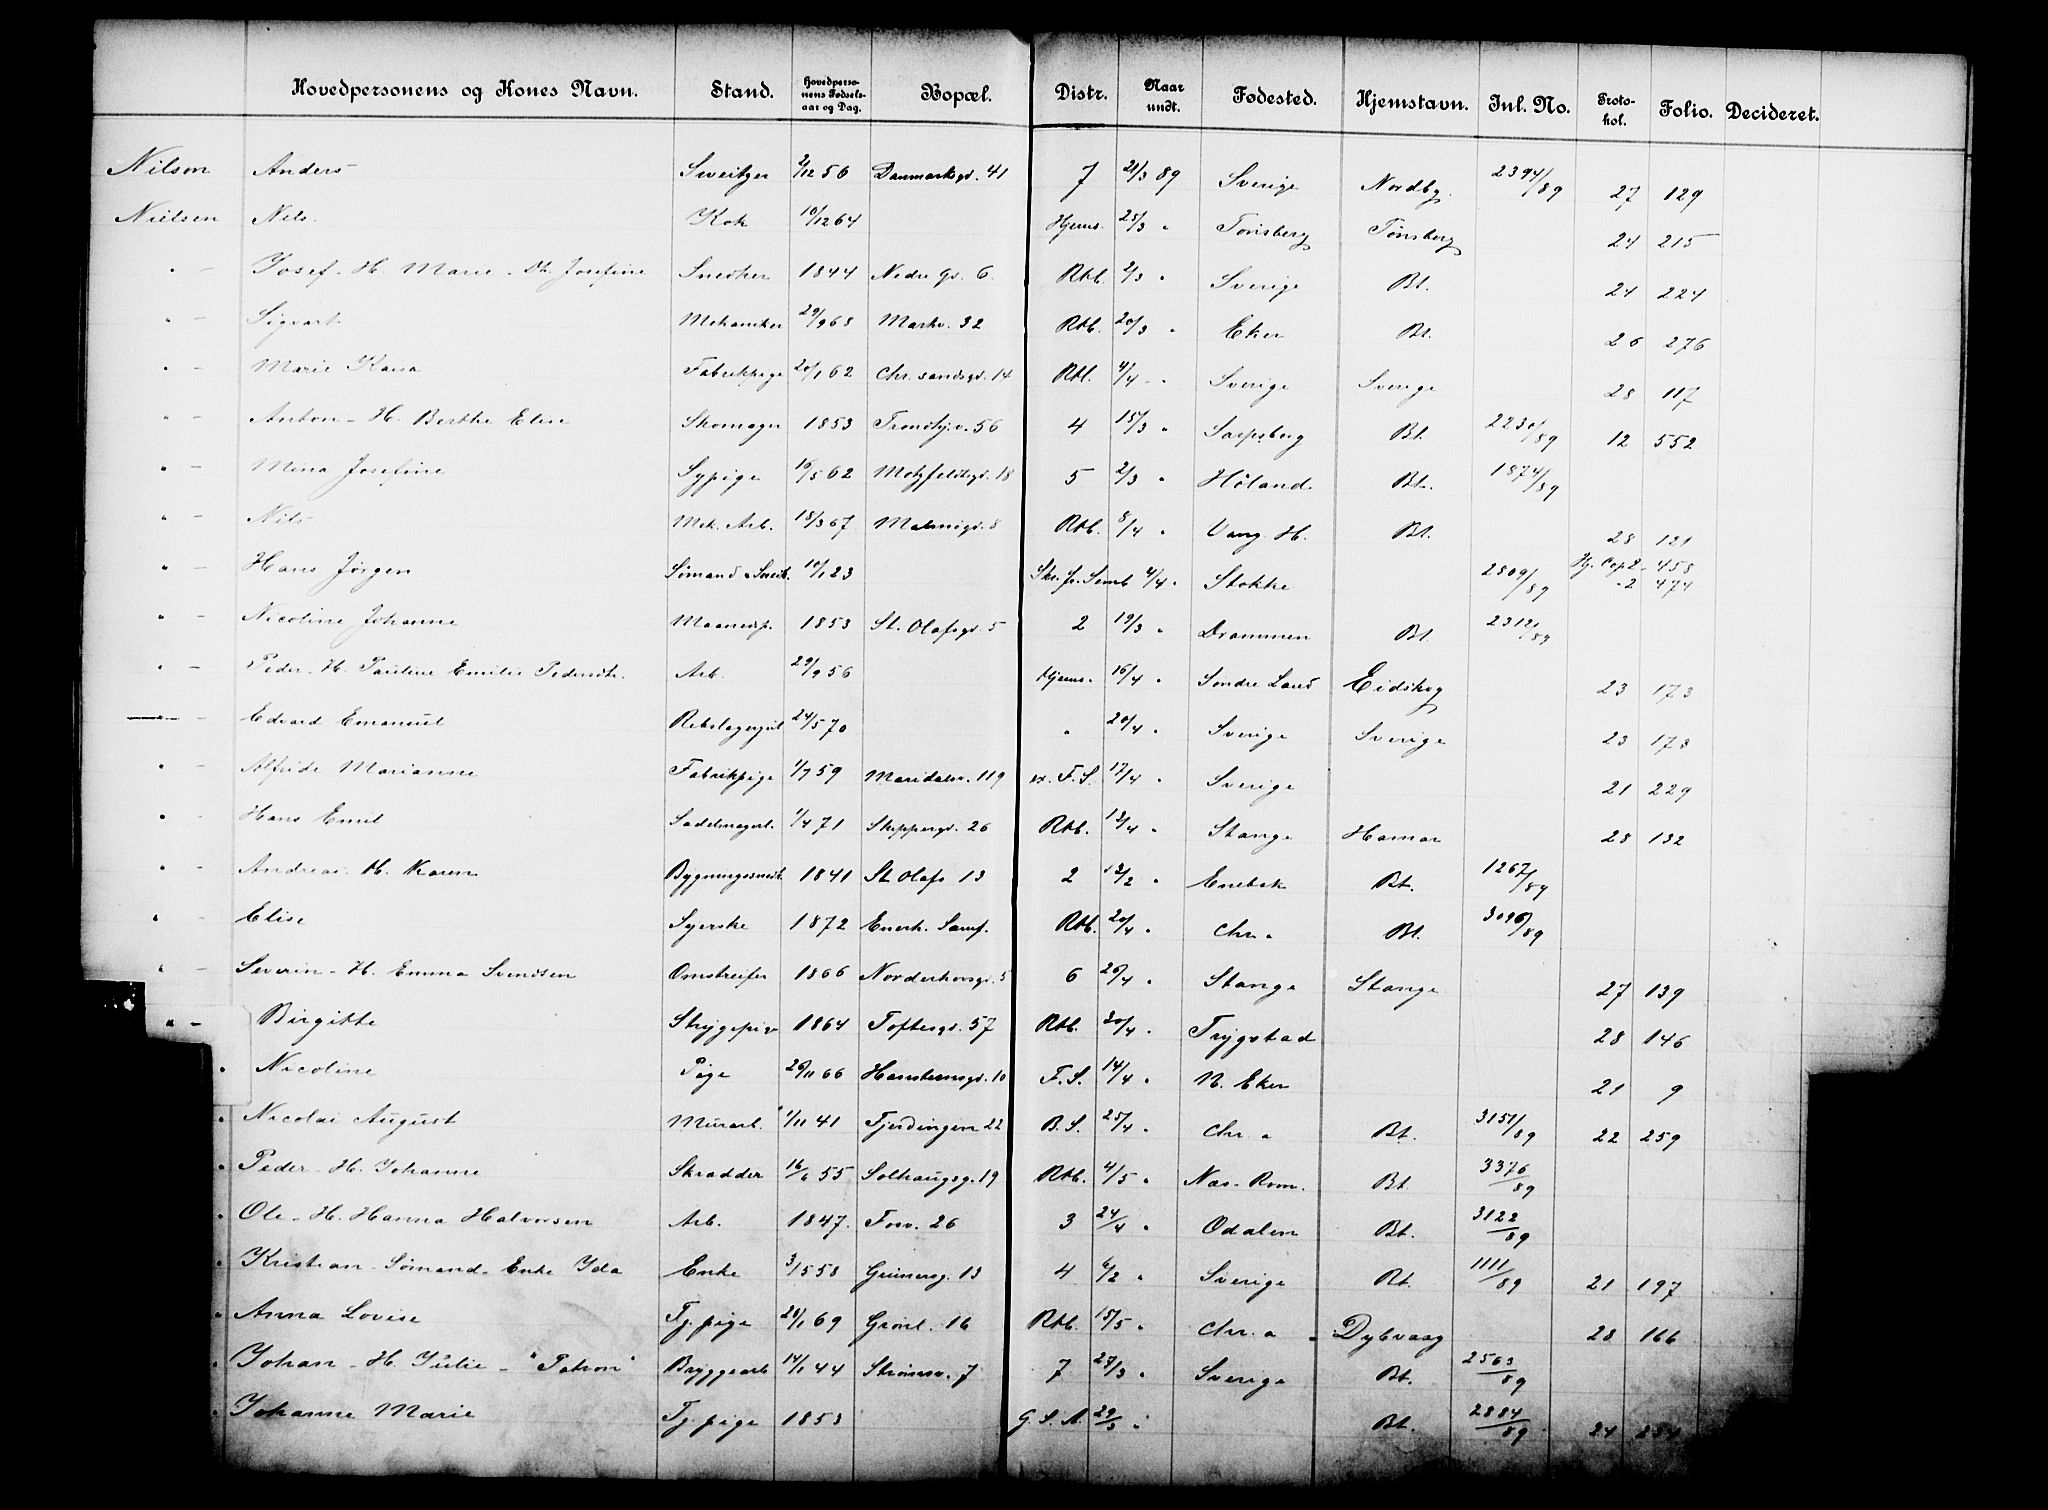 Hovedpersonens og Kones Navn. Stand. Hovedperso-nens Fødsels-aar og Dag. Bopæl. Distr. Naar undt. Fødested. Hjemstavn. Jnl. No. Proto-kol. Folio. Decideret.
Nilson Anders Sveitzer 2/12 56 Danmarksgd. 41 7 21/3 89 Sverige Nordby. 2394/89 27 129
Nielsen Nils. Kok 10/12 64 Hjems. 25/3 " Tønsberg Tønsberg 24 215
" - Josef - H. Marie - Dt. Josefine Snedker 1844 Nedre Gd. 6. Rtb. 2/3 " Sverige Bt. 24 224
" - Sigvart Mekaniker 29/9 68 Markv. 32 Rtb. 20/3 " Eker Bt. 26 276
" - Marie Kaisa Fabrikpige 20/1 62 Chr. sandsgd. 14 Rtb. 4/4 " Sverige Sverige 28 117
" - Anton - H. Berthe Elise Skomager 1853 Trondhj.v. 56 4 15/3 " Sarpsborg Bt. 2230/89 12 552
" - Mina Josefine Sypige 16/5 62 Motzfeldtsgd. 18 5 2/3 " Høland Bt. 1874/89
" - Nils Mek. Arb. 18/3 67 Malmøgd. 8 Rtb. 8/4 " Vang H. Bt. 28 121
" - Hans Jørgen Sømand & Snedk. 10/1 23 4/4 " Stokke 2809/89 Hj. Cop 2 - 458
- 2 474
" - Nicoline Johanne 1853 St. Olafsgd. 5 2 19/3 " Drammen Bt. 2312/89
" - Peder - H. Pauline Emilie Pedersdtr. Arb. 29/9 56 Hjems. 16/4 " Søndre Land Eidskog 23 173
" - Edvard Emanuel 24/5 70 " 20/4 " Sverige Sverige 23 173
" - Alfride Marianne Fabrikpige 1/7 59 Maridalsv. 119 F. S. 17/4 " Sverige 21 229
" - Hans Emil Sadelmagerl. 1/4 71 Skippergd. 26 Rtb. 12/4 " Stange Hamar 28 132
" - Andreas. H. Karen Bygningssnedk. 1841 St. Olafs 13 2 12/2 " Enebak Bt. 1267/89
" - Elise Syerske 1872 Enerh. Samf. Rtb. 20/4 " Chr.a Bt. 3096/89
" - Severin - H. Emma Svendsen Omstreifer 1866 Norderhovsgd. 5 6 26/4 " Stange Stange 27 139
" - Birgitte Strygepige 1864 Toftesgd. 57 Rtb. 20/4 " Trygstad 28 146
" Nicoline Pige 26/11 66 Hansteensgd. 10 F. S. 14/4 " N. Eker 21 9
" Nicolai August Murarb. 1/11 41 Fjerdingen 22 B. S. 25/4 " Chr.a Bt. 3151/89 22 259
" Peder - H. Johanne Skrædder 16/6 55 Solhaugsg. 19 Rtb. 4/5 " Næs - Rom. Bt. 3376/89
" Ole - H. Hanna Halvorsen Arb. 1847. Fosv. 26 3 24/4 " Odalen Bt. 3122/89
" Kristian - Sømand - Enke Ida Enke 3/1 558 Grünersg. 13 4 6/2 " Sverige Bt. 1111/89 21 197
" Anna Lovise Tj. pige 28/1 69 Grønl. 16 Rtb. 15/5 " Chr.a Dybvaag 28 166
" Johan - H. Julie - "Patron" Bryggearb 14/1 44 Strømsv. 7 7 27/3 " Sverige Bt. 2563/89
" Johanne Marie Tj. pige 1853 G. S. A. 29/3 " Bt. 2884/89 24 284